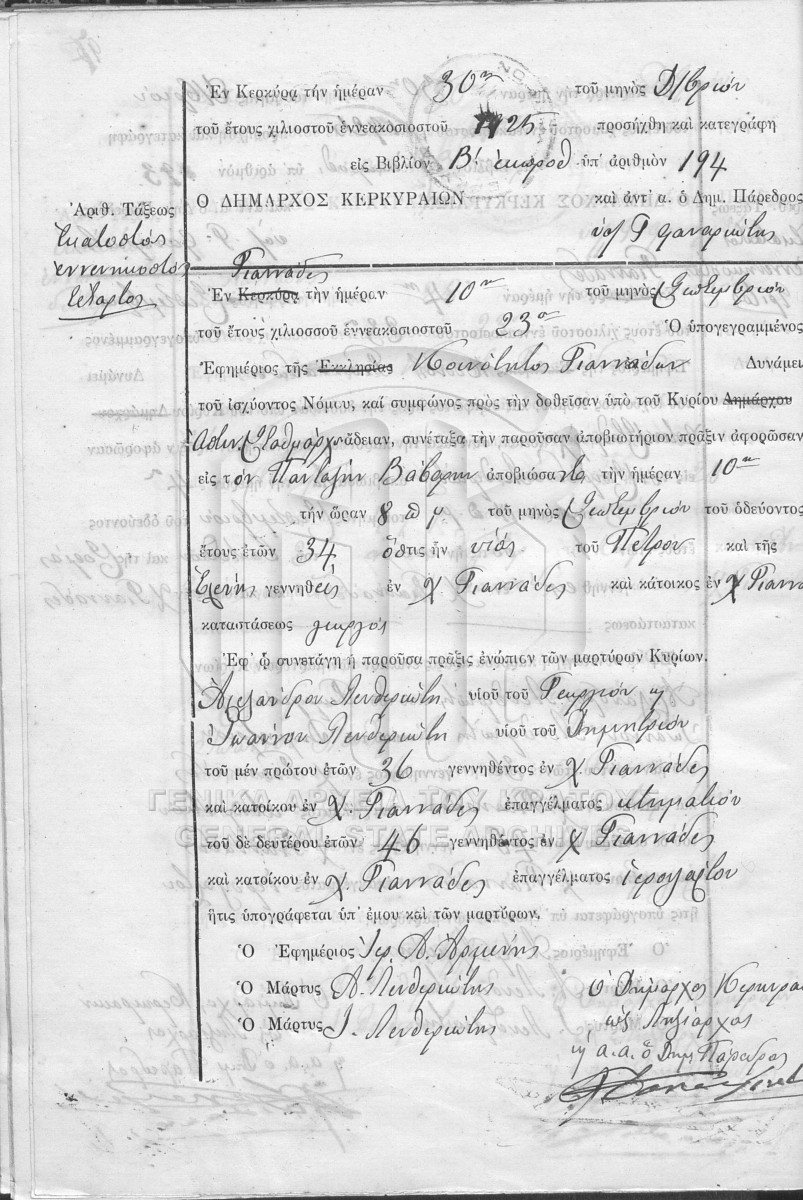 Ἐν Κερκύρᾳ τὴν ἡμέραν 30ην τοῦ μηνὸς Δ/βρίου
τοῦ ἔτους χιλιοστοῦ ἐννεακοσιοστοῦ 1925 προσήχθη καὶ κατεγράφη
εἰς Βιβλίον Β' ἐκπροθ ὑπ' ἀριθμὸν 194
Ο ΔΗΜΑΡΧΟΣ ΚΕΡΚΥΡΑΙΩΝ καὶ ἀντ' α. ὁ Δημ. Πάρεδρος
Ἀριθ. Τάξεως
Ἑκατοστός
ἐννενηκοστός
τέταρτος
Γιαννάδες
Ἐν Κερκύρᾳ τὴν ἡμέραν 10ην τοῦ μηνὸς Σεπτεμβρίου
τοῦ ἔτους χιλιοσσοῦ ἐννεακοσιοστοῦ 23ου Ὁ ὑπογεγραμμένος
Ἐφημέριος τῆς Ἐκκλησίας Κοινότητος Γιαννάδων Δυνάμει
τοῦ ἰσχύοντος Νόμου, καὶ συμφώνος πρὸς τὴν δοθεῖσαν ὑπὸ τοῦ Κυρίου Δημάρχου
Ἀστυν. Σταθμάρχου ἄδειαν, συνέταξα τὴν παροῦσαν ἀποβιωτήριον πρᾶξιν ἀφορῶσαν
εἰς τὸν Πανταζῆν Βάβουλην ἀποβιώσαντα τὴν ἡμέραν 10ην
τὴν ὥραν 8 π μ τοῦ μηνὸς Σεπτεμβρίου τοῦ ὁδεύοντος
ἔτους ἐτῶν 34 ὅστις ἦν υἱός τοῦ Πέτρου καὶ τῆς
Ἑλένης γεννηθείς ἐν χ Γιαννάδες καὶ κάτοικος ἐν χ Γιαννα
καταστάσεως γεωργός
Ἐφ' ᾧ συνετάγη ἡ παροῦσα πρᾶξις ἐνώπιον τῶν μαρτύρων Κυρίων.
Ἀλεξάνδρου Λευθεριώτη υἱοῦ τοῦ Γεωργίου κ
Ἰωάννου Λευθεριώτη υἱοῦ τοῦ Δημητρίου
τοῦ μὲν πρώτου ἐτῶν 36 γεννηθέντος ἐν χ Γιαννάδες
καὶ κατοίκου ἐν χ. Γιαννάδες ἐπαγγέλματος κτηματίου
τοῦ δὲ δευτέρου ἐτῶν 46 γεννηθέντος ἐν χ Γιαννάδες
καὶ κατοίκου ἐν χ. Γιαννάδες ἐπαγγέλματος ἱεροψάλτου
ἥτις ὑπογράφεται ὑπ' ἐμου καὶ τῶν μαρτύρων.
Ὁ Ἐφημέριος Ἱερ. Α. Ἀρμένης
Ὁ Μάρτυς Α. Λευθεριώτης
Ὁ Μάρτυς Ι. Λευθεριώτης
Ὁ Δήμαρχος Κερκυρα
ὡς Ληξίαρχος
κ α.α. ὁ Δημ Πάρεδρος
ΓΕΝΙΚΑ ΑΡΧΕΙΑ ΤΟΥ ΚΡΑΤΟΥΣ
GENERAL STATE ARCHIVES